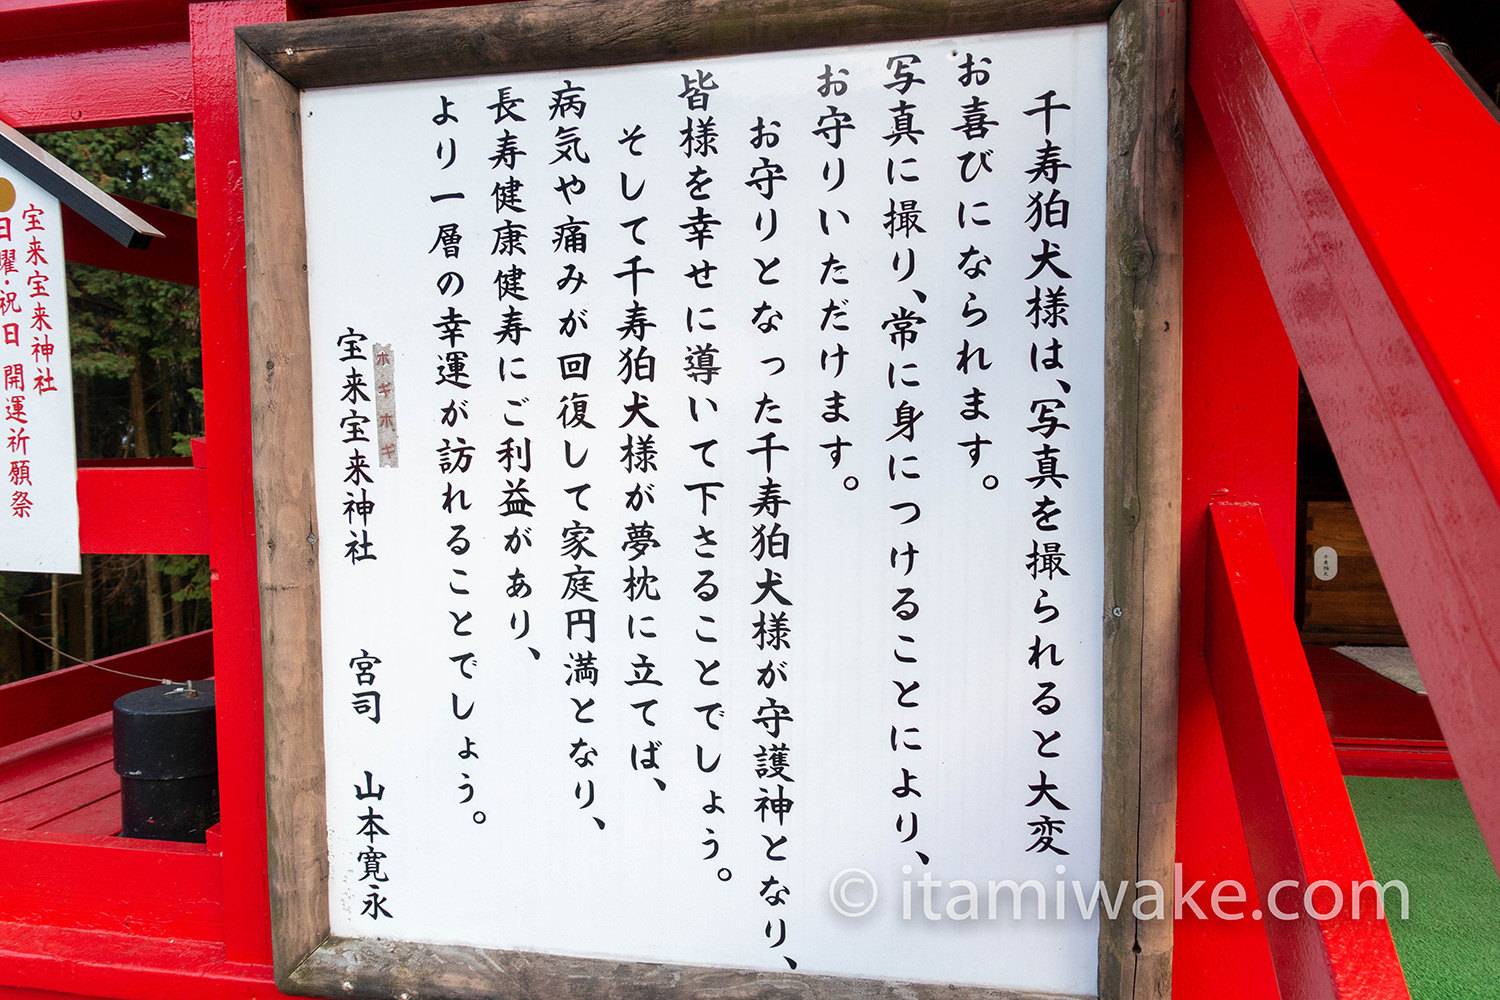 千寿狛犬様は、写真を撮られると大変
お喜びになられます。
写真に撮り、常に身につけることにより、
お守りいただけます。
お守りとなった千寿狛犬様が守護神となり、
皆様を幸せに導いて下さることでしょう。
そして千寿狛犬様が夢枕に立てば、
病気や痛みが回復して家庭円満となり、
長寿健康健寿にご利益があり、
より一層の幸運が訪れることでしょう。
ホギホギ
宝来宝来神社　宮司　山本寛永
宝来宝来神社
日曜・祝日 開運祈願祭
千寿狛犬
© itamiwake.com